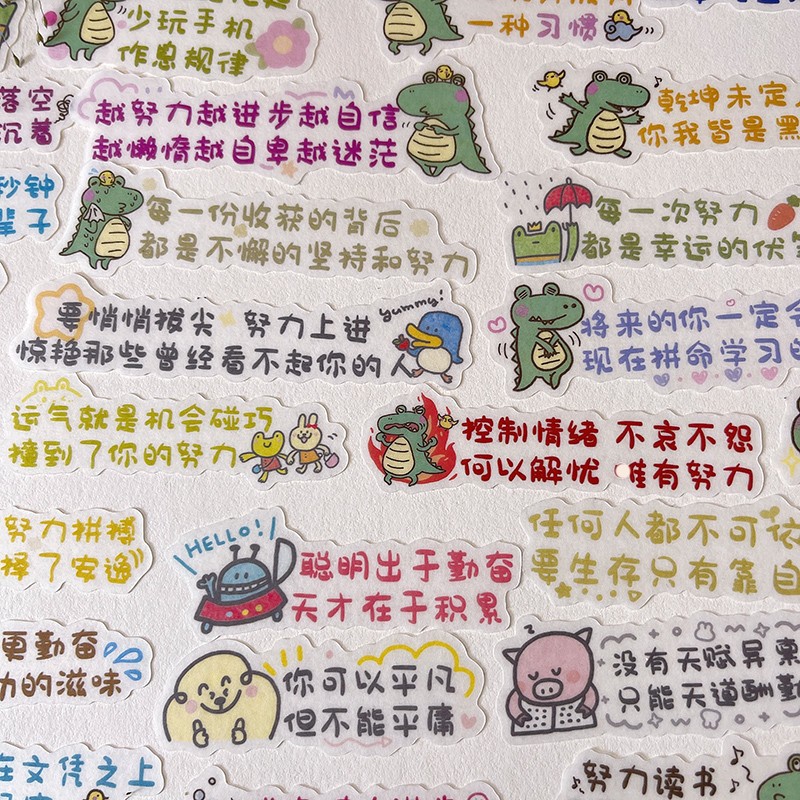 少玩手机
作息规律
一种习惯
落空
沉着
越努力越进步越自信
越懒惰越自卑越迷茫
乾坤未定
你我皆是黑
秒钟
辈子
每一份收获的背后
都是不懈的坚持和努力
每一次努力
都是幸运的伏笔
要悄悄拔尖 努力上进
yummy!
惊艳那些曾经看不起你的人
将来的你一定会
现在拼命学习的
运气就是机会碰巧
撞到了你的努力
控制情绪 不哀不怨
何以解忧 唯有努力
努力拼搏
择了安逸
HELLO!
聪明出于勤奋
天才在于积累
任何人都不可依
要生存只有靠自
更勤奋
力的滋味
你可以平凡
但不能平庸
没有天赋异禀
只能天道酬勤
在文凭之上
努力读书